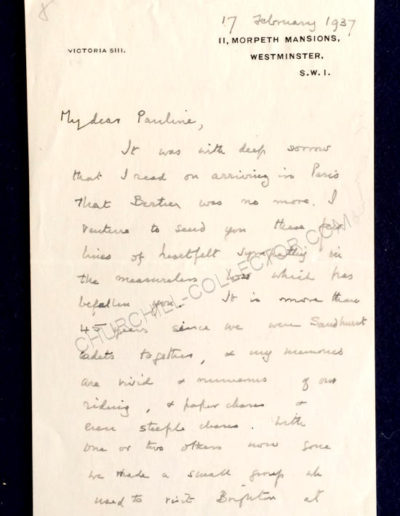 8
17 February 1937
11, MORPETH MANSIONS,
VICTORIA 8111.
WESTMINSTER,
S.W.1.
My dear Pauline,
It was with deep sorrow
that I read on arriving in Paris
that was no more. I
venture to send you these few
lines of heartfelt sympathy in
the measureless loss which has
befallen you. It is more than
45 years since we were Sandhurst
cadets together, & my memories
are vivid & numerous of our
riding, & paper chases &
even steeple chases. With
one or two others now gone
we made a small group wh
used to visit Brighton at
CHURCHILL-COLLECTOR.COM